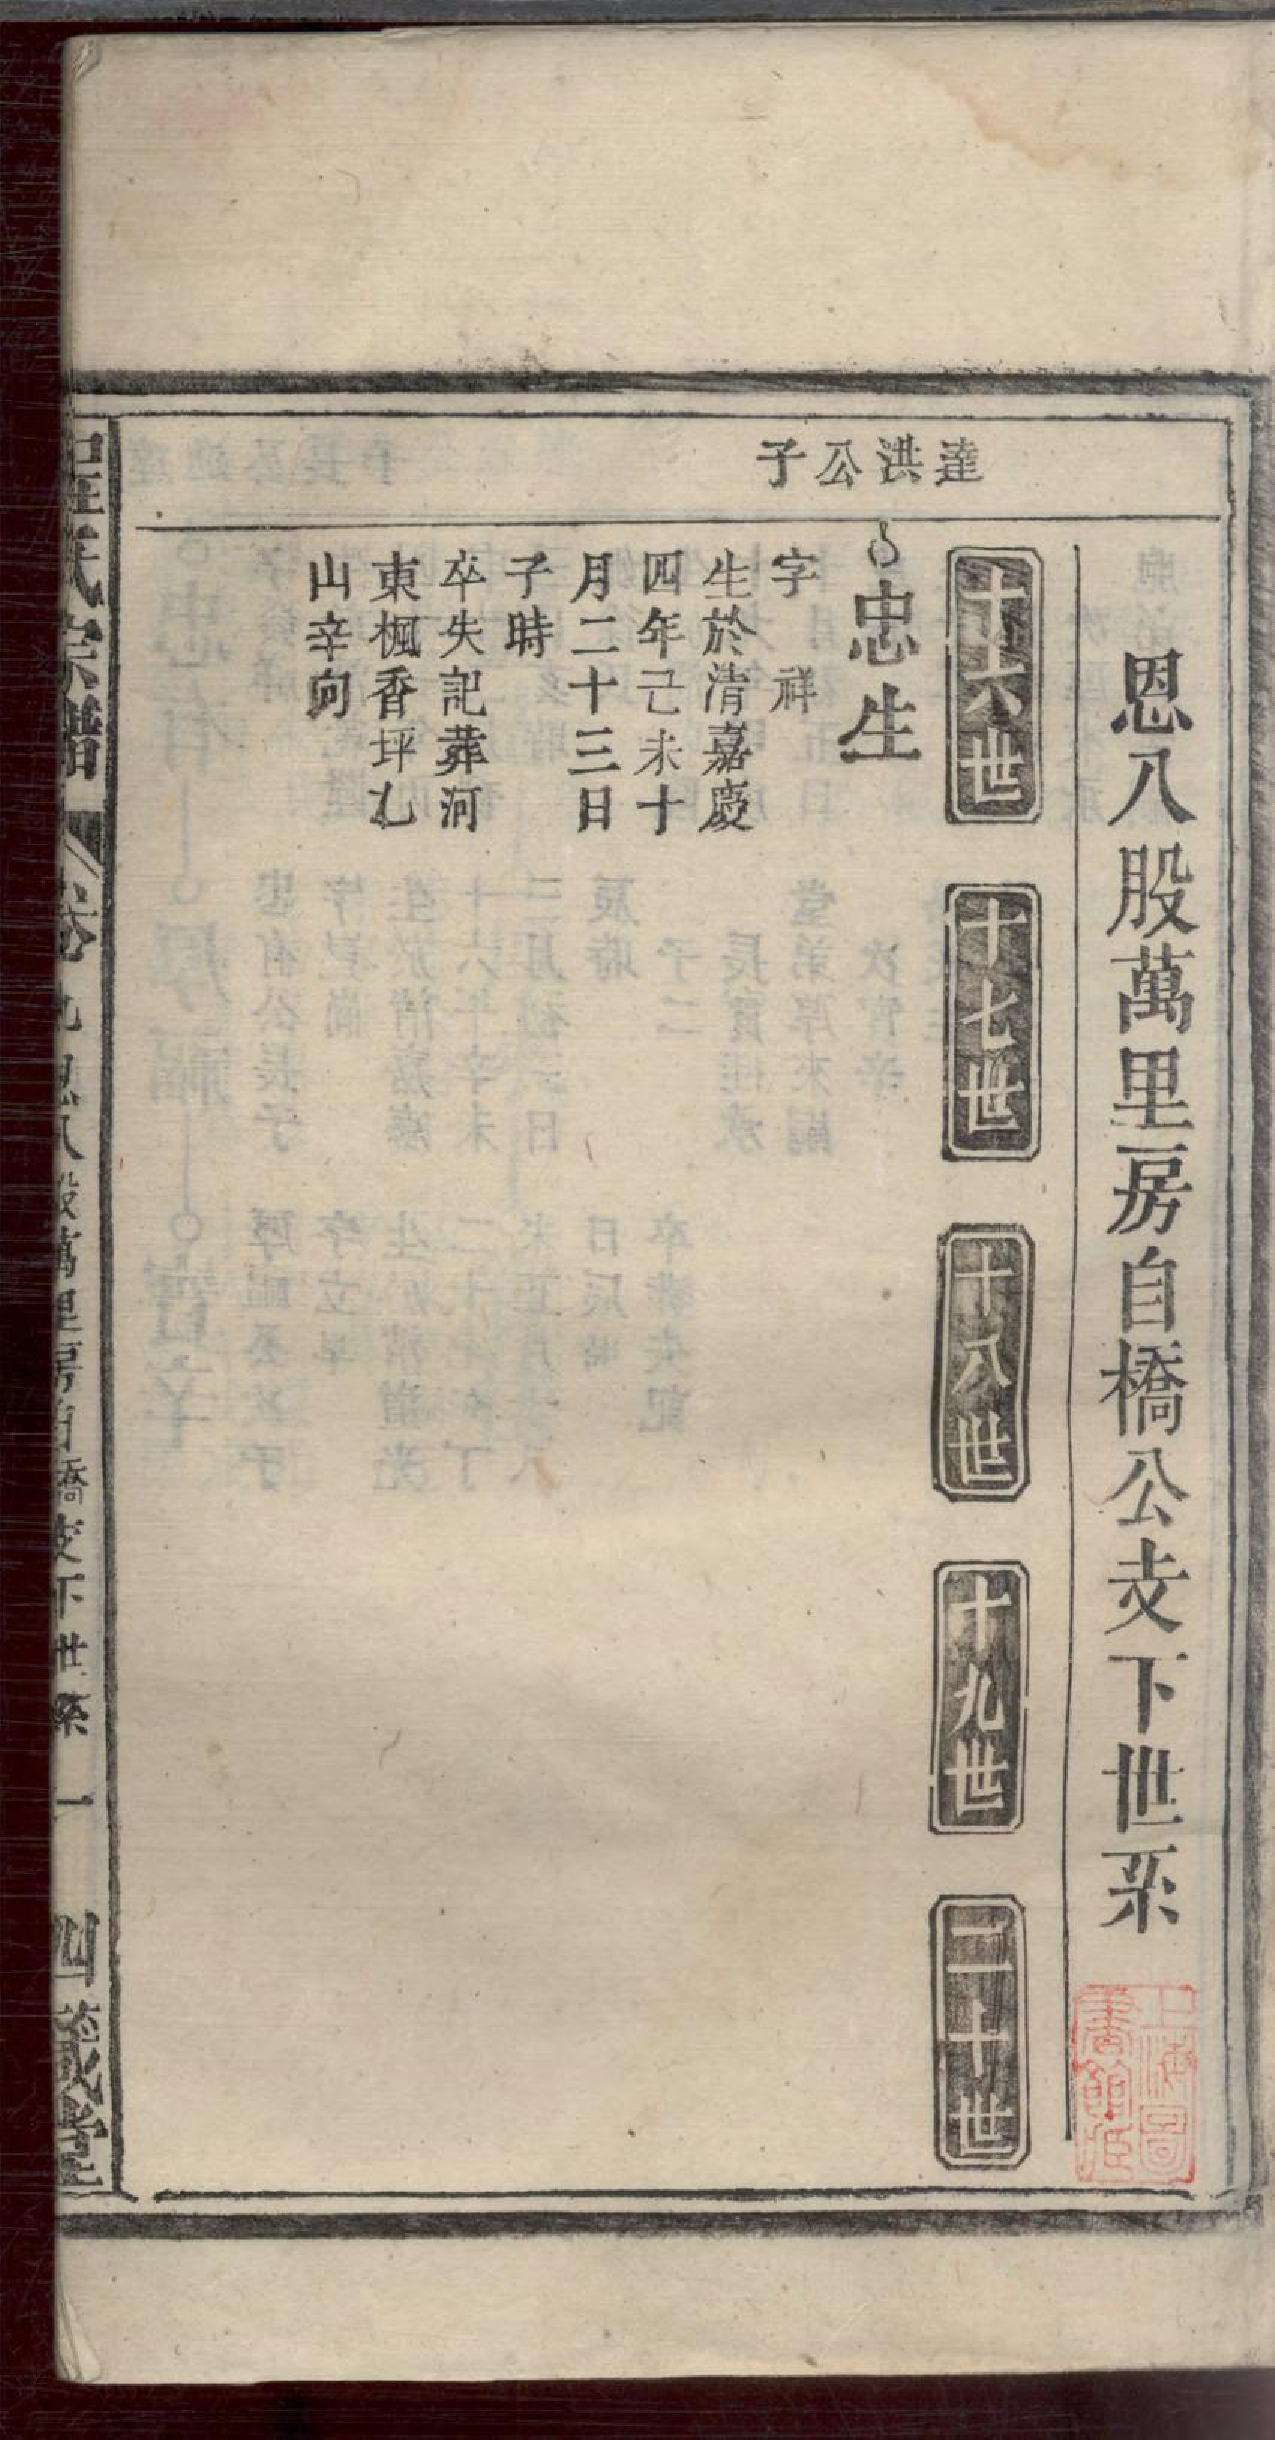 恩八股萬里房自橋公支下世系
上海圖書館藏
達洪公子
十六世
十七世
十八世
十九世
二十世
忠生
字 祥
生於清嘉慶
四年己未十
月二十三日
子時
卒失記葬河
東楓香坪乙
山辛向
程氏宗譜
卷九 恩八股萬里房自橋支下世系 一 四箴堂